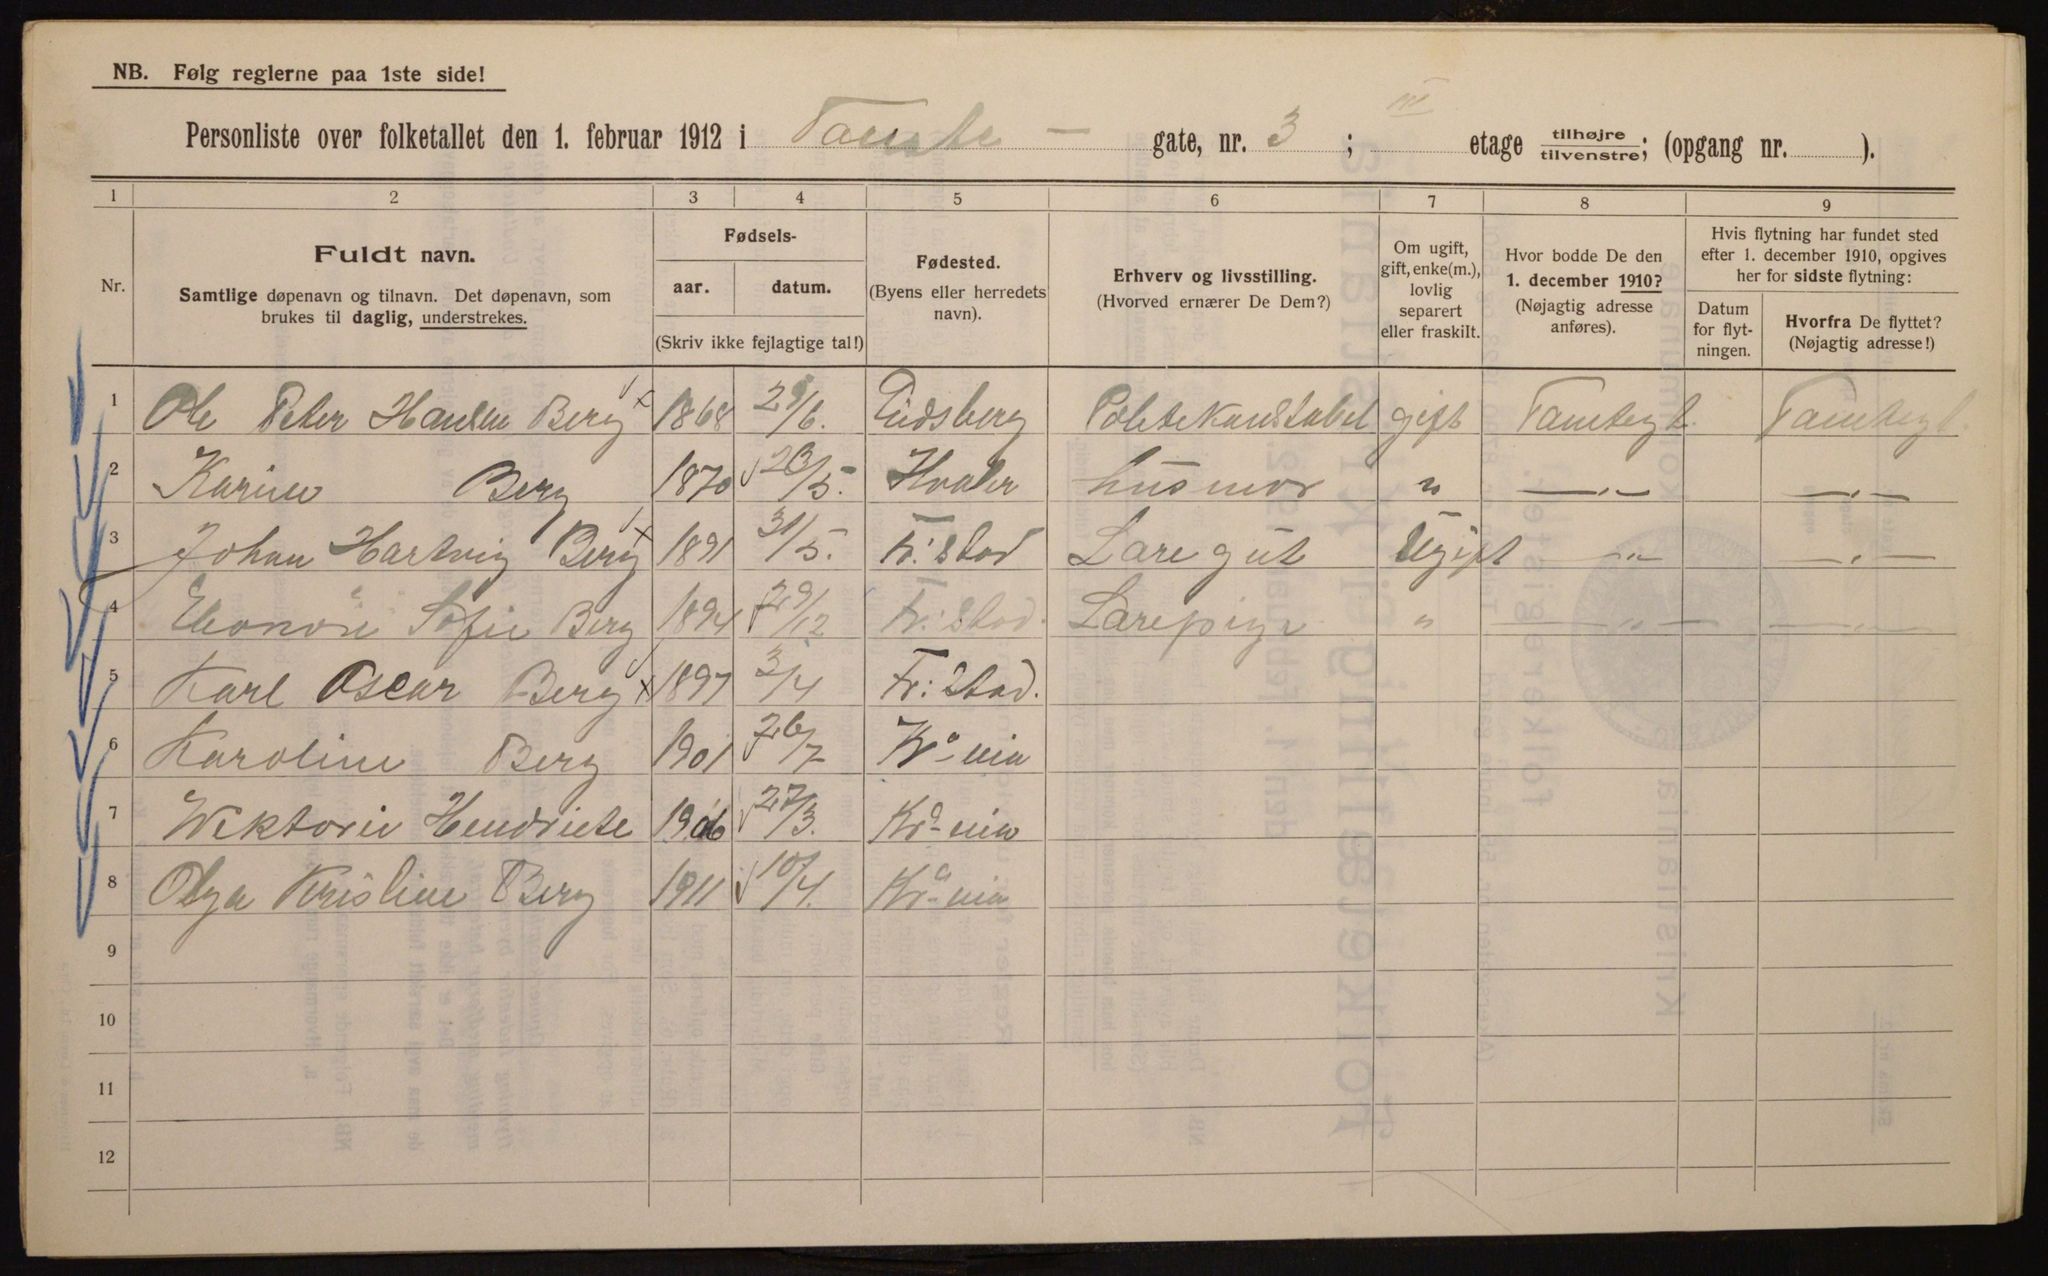 NB. Følg reglerne paa 1ste side!
Personliste over folketallet den 1. februar 1912 i Tomte - gate, nr. 3 ; III etage tilhøjre/tilvenstre; (opgang nr. ).
1 2 3 4 5 6 7 8 9
Nr.
Fuldt navn.
Samtlige døpenavn og tilnavn. Det døpenavn, som
brukes til daglig, understrekes.
Fødsels-
aar. datum.
(Skriv ikke fejlagtige tal!)
Fødested.
(Byens eller herredets
navn).
Erhverv og livsstilling.
(Hvorved ernærer De Dem?)
Om ugift,
gift, enke(m.),
lovlig
separert
eller fraskilt.
Hvor bodde De den
1. december 1910?
(Nøjagtig adresse
anføres).
Hvis flytning har fundet sted
efter 1. december 1910, opgives
her for sidste flytning:
Datum
for flyt-
ningen.
Hvorfra De flyttet?
(Nøjagtig adresse!)
1 Ole Peter Hansen Berg 1868 29/6. Eidsberg Politikonstabel gift Tomtegt. Tomtegt.
2 Karine Berg 1870 20/5. Hvaler Husmor " —"— —"—
3 Johan Hartvig Berg 1891 31/5. Fr: stad Læregut Ugift —"— —"—
4 Eleonore Sofie Berg 1894 29/12 Fr: Stad. Lærepige " —"— —"—
5 Karl Oscar Berg 1897 3/4 Fr: Stad.
6 Karoline Berg 1901 26/7 Kra-nia
7 Wiktorie Hendriete 1906 27/3. Kra-nia
8 Olga Kristine Berg 1911 10/4. Kra-nia
9
10
11
12